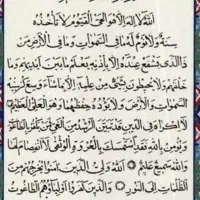 اَللّٰهُ لَا اِلٰهَ اِلَّا هُوَ الْحَىُّ الْقَيُّومُ لَا تَأْخُذُهُ
سِنَةٌ وَلَا نَوْمٌ لَهُ مَا فِى السَّمٰوَاتِ وَمَا فِى الْاَرْضِ مَنْ
ذَا الَّذِى يَشْفَعُ عِنْدَهُ اِلَّا بِاِذْنِهِ يَعْلَمُ مَا بَيْنَ اَيْدِيهِمْ وَمَا
خَلْفَهُمْ وَلَا يُحِيطُونَ بِشَىْءٍ مِنْ عِلْمِهِ اِلَّا بِمَا شَاءَ وَسِعَ كُرْسِيُّهُ
السَّمٰوَاتِ وَالْاَرْضَ وَلَا يَؤُدُهُ حِفْظُهُمَا وَهُوَ الْعَلِىُّ الْعَظِيمُ
لَا اِكْرَاهَ فِى الدِّينِ قَدْ تَبَيَّنَ الرُّشْدُ مِنَ الْغَىِّ فَمَنْ يَكْفُرْ بِالطَّاغُوتِ
وَيُؤْمِنْ بِاللّٰهِ فَقَدِ اسْتَمْسَكَ بِالْعُرْوَةِ الْوُثْقٰى لَا انْفِصَامَ لَهَا
وَاللّٰهُ سَمِيعٌ عَلِيمٌ اَللّٰهُ وَلِىُّ الَّذِينَ اٰمَنُوا يُخْرِجُهُمْ مِنَ
الظُّلُمَاتِ اِلَى النُّورِ وَالَّذِينَ كَفَرُوا اَوْلِيَاؤُهُمُ الطَّاغُوتُ